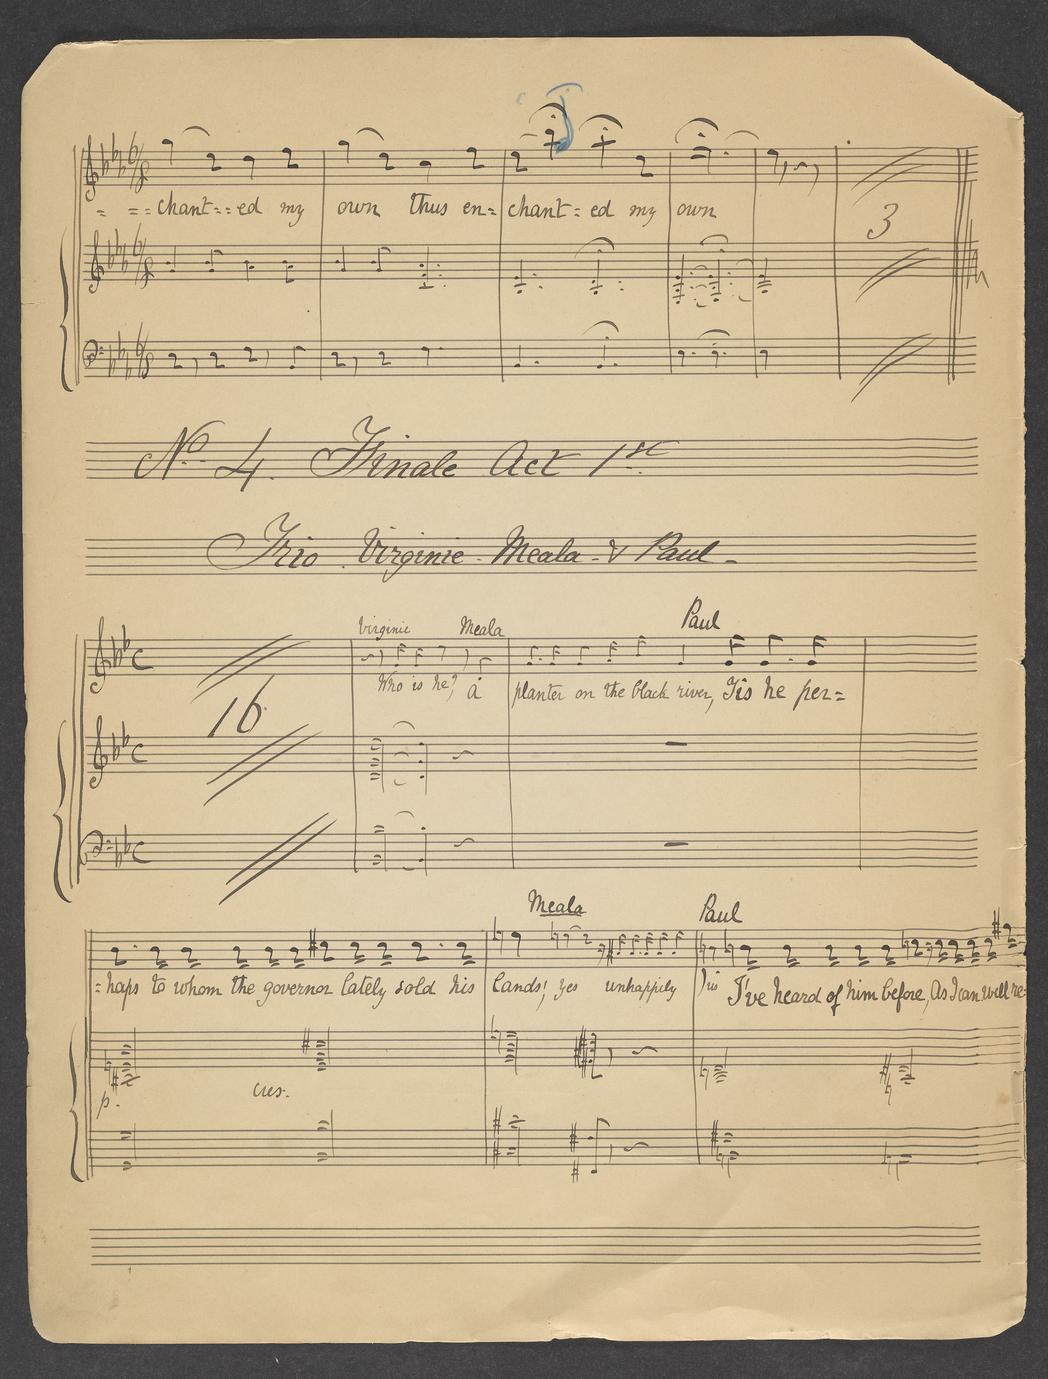 = == chant==ed my own thus en= chant=ed my own
3
No. 4. Finale Act 1st.
Trio. Virginie - Meala - & Paul -
Virginie Meala Paul
Who is he? a planter on the black river, Tis he per=
16
Meala Paul
=haps to whom the governor lately sold his lands; yes unhappily I've heard of him before, As I can well re=
p. cres.